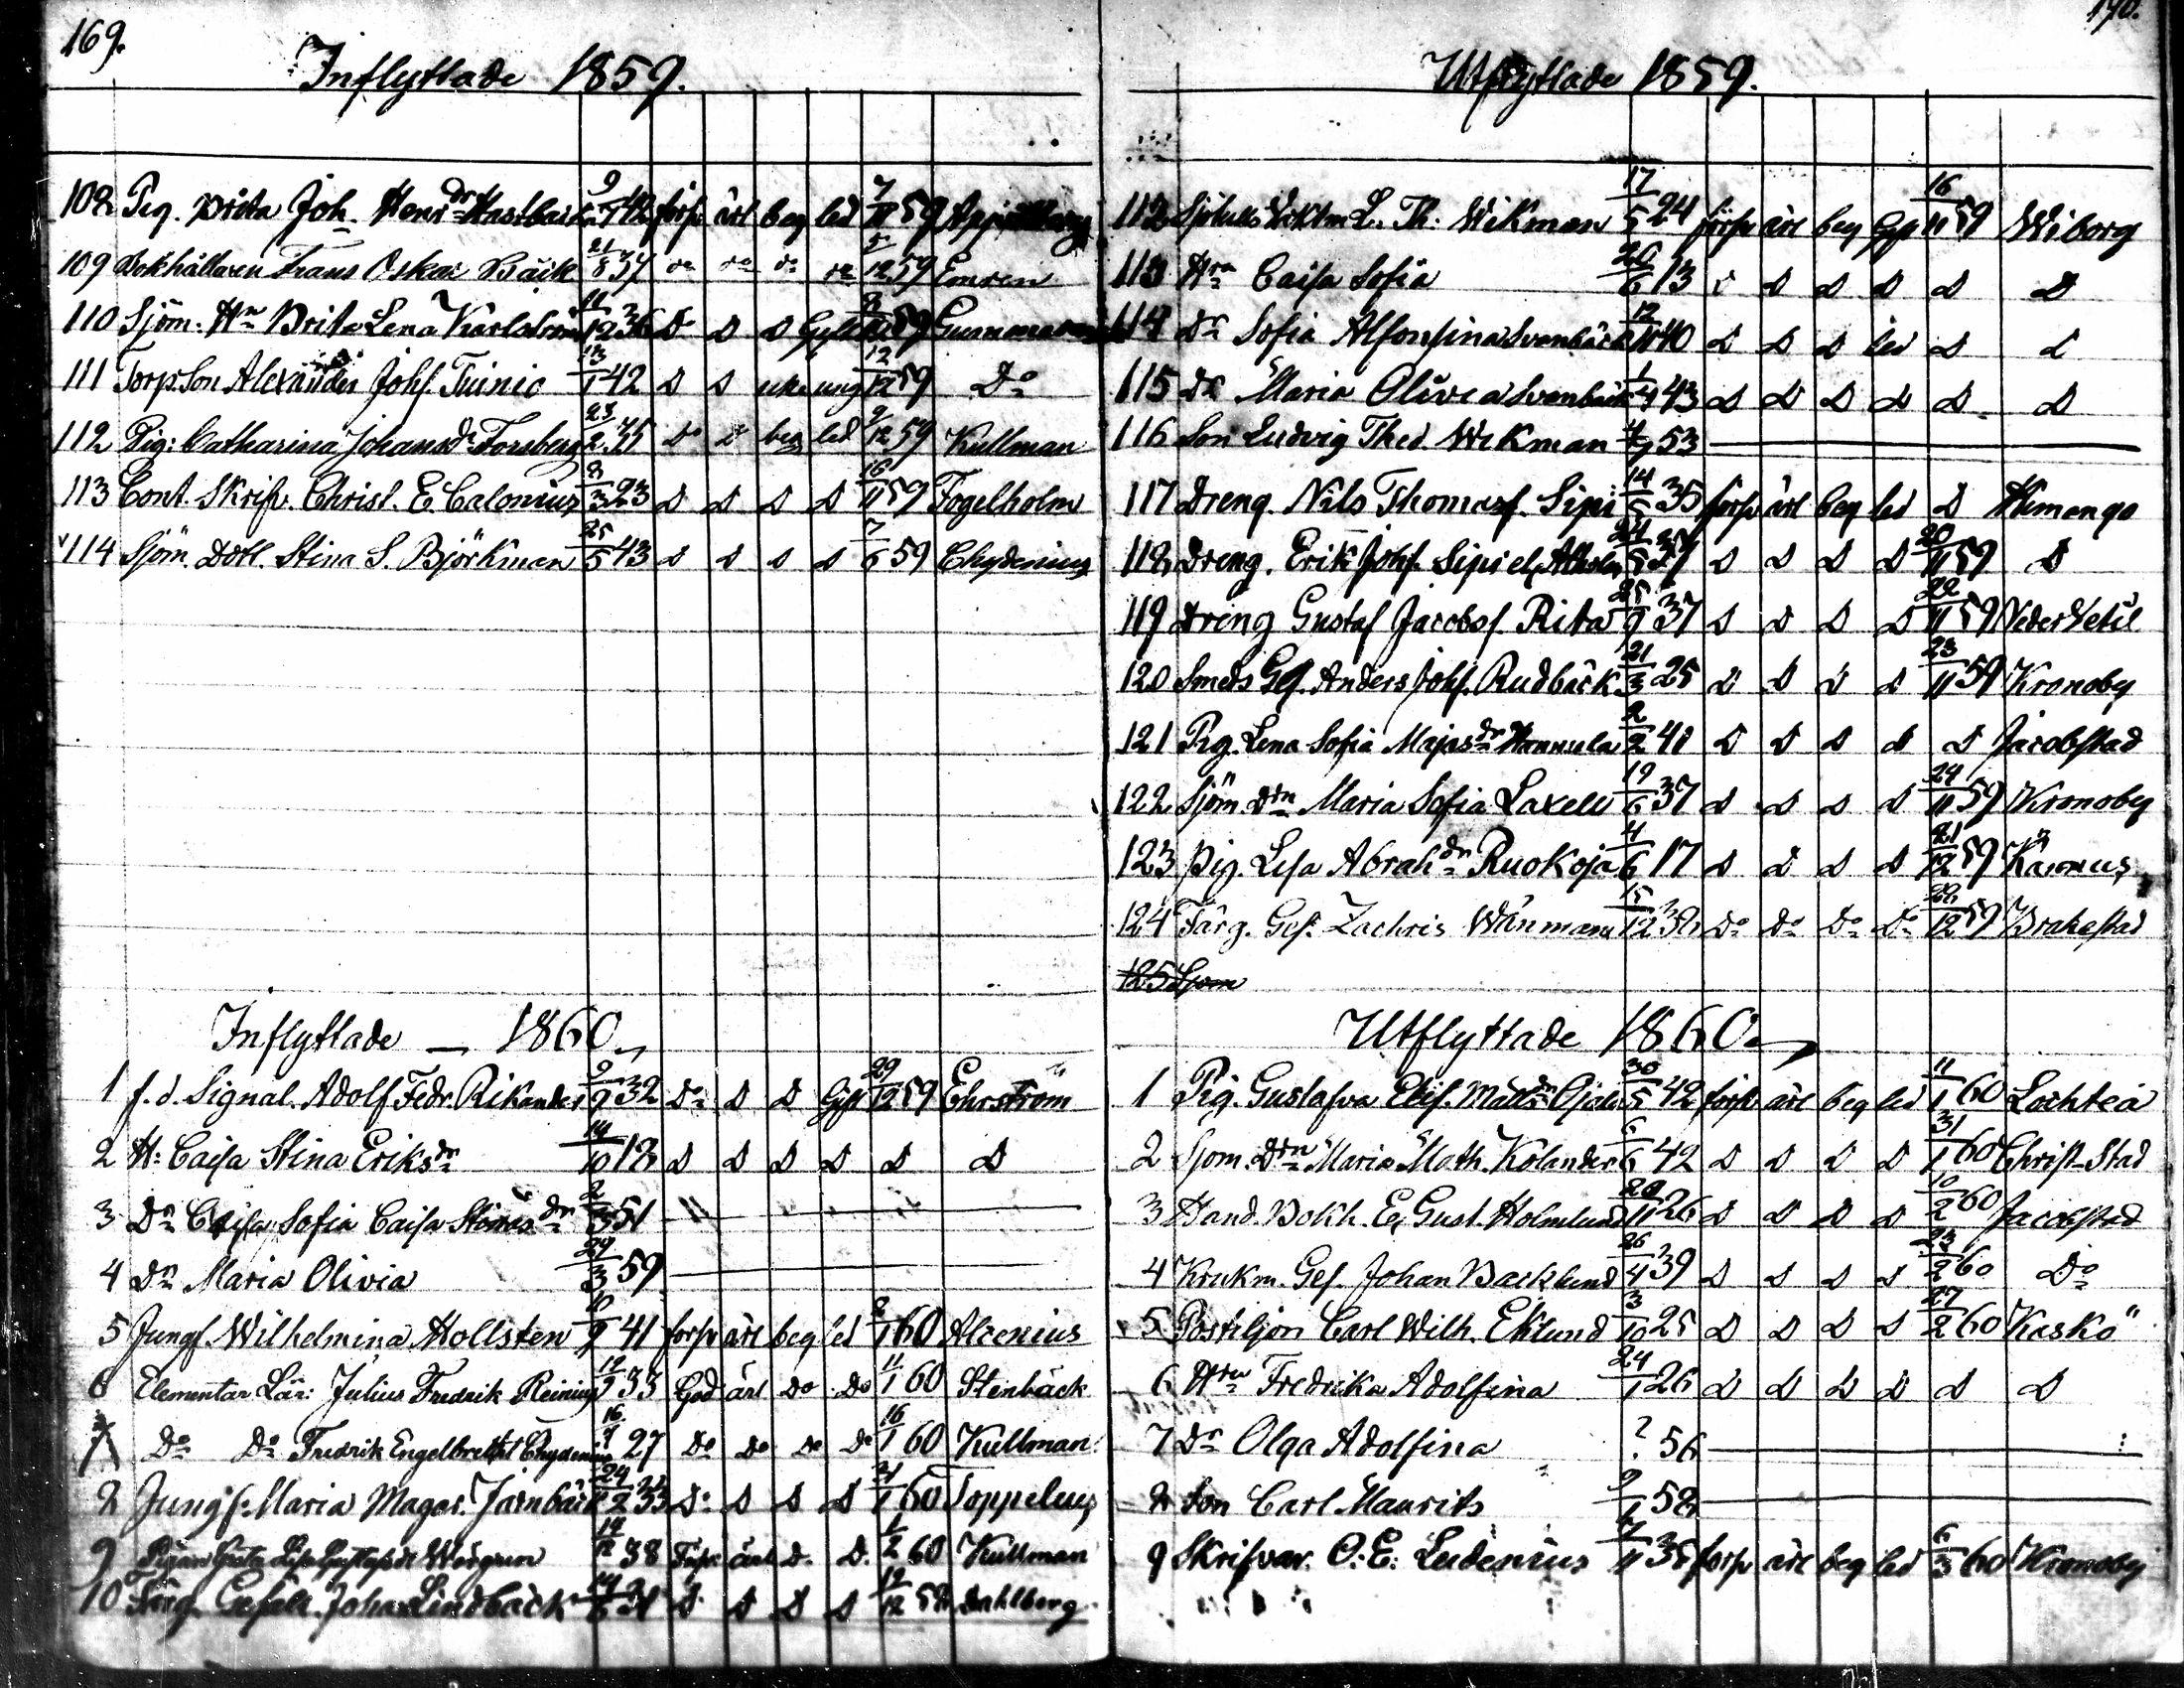 169.
Inflyttade 1859.
108 Pig. Brita Joh. Henr dr Hastbacka 9/ 42 forsv ärl beg led 7/11 59
109 Bokhållaren Frans Oskar Bäck 21/8 37 do do do do 5/12 59 Emren
110 Sjöm. Hn Brita Lena Karlström 11/12 36 Do D D Gift 8/12 59
111 Torp.Son Alexander Johs. Tuinio 13/1 42 D D oke ung 12/12 59 Do
112 Pig: Catharina Johansdr Forsberg 23/2 35 Do D beg led 9/12 59 Kullman
113 Cont. Skrifv. Christ. E. Calonius 8/3 23 D D D D 16/11 59 Fogelholm
114 Sjöm. Dotl. Stina S. Björkman 25/5 43 D D D D 7/6 59 Chydenius
Inflyttade — 1860
1 f.d. Signal. Adolf Fedr. Rikander 9/9 32 Do D D Gift 29/12 59 Ehrström
2 H: Caisa Stina Eriksdr 14/10 18 D D D D D D
3 Dr Caisa Sofia Caisa Stinas dr 2/3 51
4 Dr Maria Olivia 29/3 59
5 Jungf. Wilhelmina Hollsten 10/9 41 forsv ärl beg led 2/1 60 Alcenius
6 Elementar Lär: Julius Fredrik Reinius 19/9 33 God ärl Do Do 11/1 60 Stenbäck
7 Do Do Fredrik Engelbrekt Chydenius 16/9 27 Do Do Do Do 16/1 60 Kullman
8 Jungf. Maria Magar. Jarnbäck 24/12 33 Do D D D 21/1 60 Toppelius
9 Pigan Greta Lisa Gustafsdr Wargrun 14/12 38 Forsv ärl D. D. 1/2 60 Kullman
10 Färg. Gesäll. Johan Lindbäck 14/6 31 D D D D 19/12 58 Dahlberg
170.
Utflyttade 1859.
112 Sjötulls Vaktm L. Th: Wikman 17/5 24 forsv ärl beg Gift 16/11 59 Wiborg
113 Hru Caisa Sofia 20/6 13 D D D D D D
114 Dr Sofia Alfonsina Svanbäck 12/11 40 D D D led D D
115 Dr Maria Olivea Svanbäck 1/4 43 D D D D D D
116 Son Ludvig Thed. Wikman 4/9 53
117 Dreng. Nils Thomasf. Sipi 14/5 35 forsv ärl beg led D Himango
118 Dreng. Erik Johs. Sipi el. Alholm 24/5 37 D D D D 20/11 59 D
119 Dreng Gustaf Jacobsf. Rita 25/9 37 D D D D 22/11 59 NederVetil
120 Smeds Ges. Anders Johs. Rudbäck 21/3 25 D D D D 23/11 59 Kronoby
121 Pig. Lena Sofia Majasdr Hannula 2/2 41 D D D D D Jacobstad
122 Sjöm. Drn Maria Sofia Laxell 19/6 37 D D D D 24/11 59 Kronoby
123 Pig. Lisa Abrahdr Ruokoja 4/6 17 D D D D 21/12 59 Kärmus
124 Färg. Ges. Zachris Wänmann 15/12 38 Do Do Do Do 28/12 59 Brahestad
125 Sjom
Utflyttade 1860
1 Pig. Gustafva Elis. Mattsdr Ojala 30/5 42 forsv ärl beg led 11/1 60 Lochteå
2 Sjom. Drn Maria Math. Kolander 6/6 42 D D D D 31/1 60 Christ-Stad
3 Hand. Bokh. E. Gust. Holmlund 20/11 26 D D D D 10/2 60 Jacobstad
4 Krukm. Ges. Johan Backlund 26/4 39 D D D D 23/2 60 Do
5 Postiljon Carl Wilh. Eklund 3/10 25 D D D D 27/2 60 Kaskö
6 Hru Fredrika Adolfina 24/1 26 D D D D D D
7 Dr Olga Adolfina ? 56
8 Son Carl Maurits 9/1 58
9 Skrifvar. O: E: Ludenius 4/11 35 forsv ärl beg led 6/3 60 Kronoby